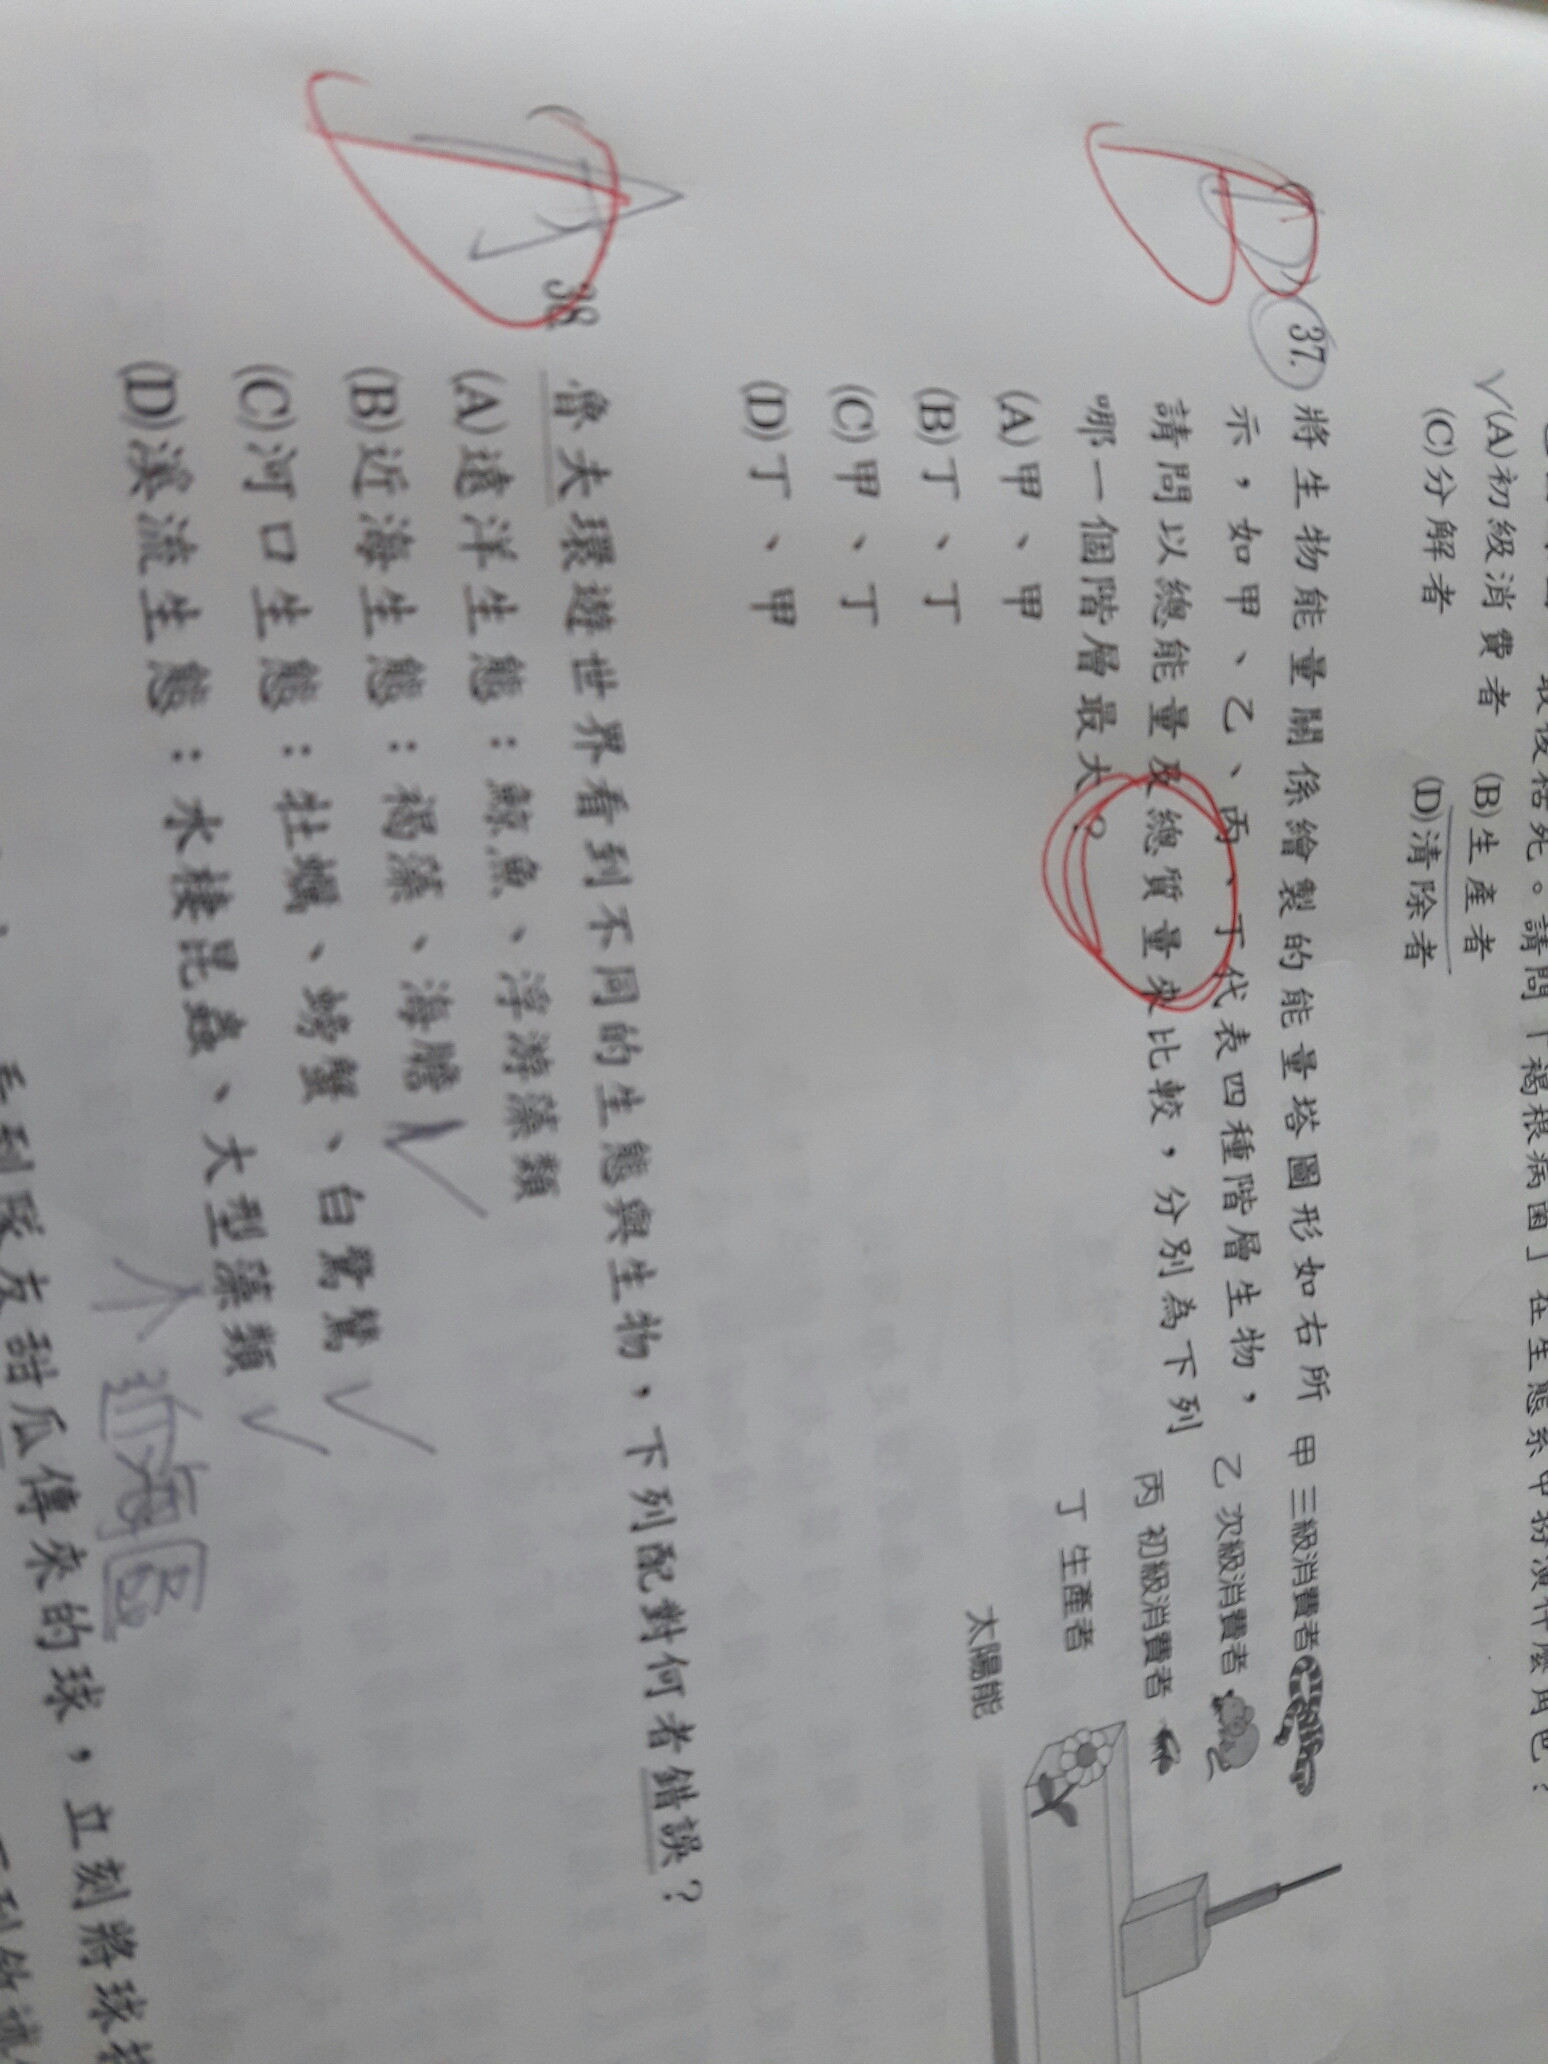 最後枯死。請問「褐根病菌」在生態系中扮演什麼角色?
(A)初級消費者 (B)生產者
(C)分解者 (D)清除者
37. 將生物能量關係繪製的能量塔圖形如右所
示,如甲、乙、丙、丁代表四種階層生物,
請問以總能量及總質量來比較,分別為下列
哪一個階層最大?
(A)甲、甲
(B)丁、丁
(C)甲、丁
(D)丁、甲
甲 三級消費者
乙 次級消費者
丙 初級消費者
丁 生產者
太陽能
38 魯夫環遊世界看到不同的生態與生物,下列配對何者錯誤?
(A)遠洋生態:鯨魚、浮游藻類
(B)近海生態:褐藻、海膽
(C)河口生態:牡蠣、螃蟹、白鷺鷥
(D)溪流生態:水棲昆蟲、大型藻類
近海區
看到隊友甜瓜傳來的球,立刻將球